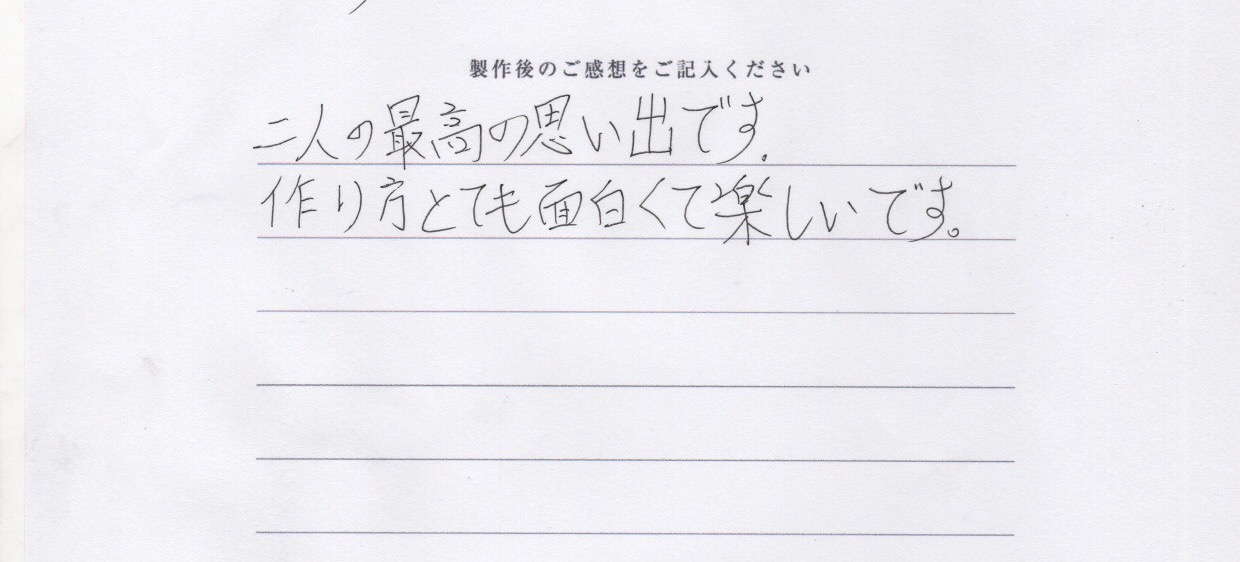 製作後のご感想をご記入ください
二人の最高の思い出です.
作り方とても面白くて楽しいです。